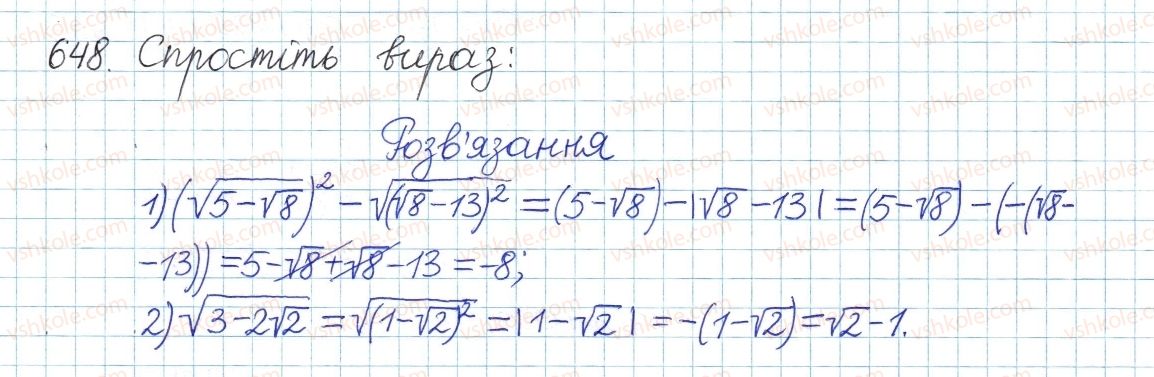 648. Спростіть вираз:
Розв'язання
1) (√(5-√8))² - √((√8-13)²) = (5-√8) - |√8-13| = (5-√8) - (-(√8-
-13)) = 5-√8+√8-13 = -8;
2) √(3-2√2) = √((1-√2)²) = |1-√2| = -(1-√2) = √2-1.
vshkole.com